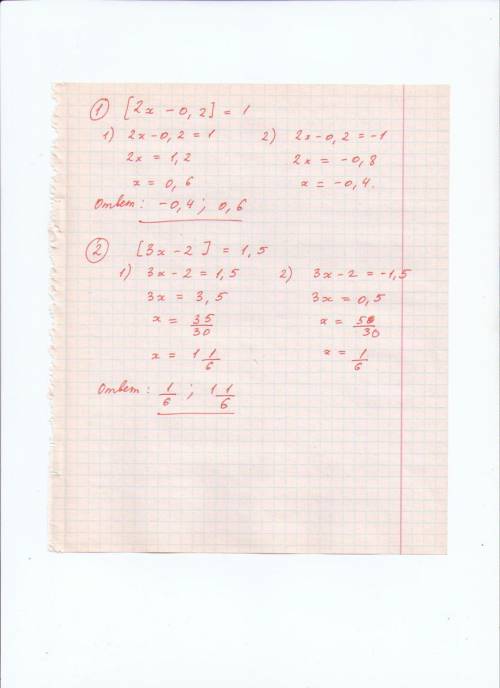 ① [2x - 0,2] = 1
1) 2x - 0,2 = 1 2) 2x - 0,2 = -1
2x = 1,2 2x = -0,8
x = 0,6 x = -0,4.
Ответ: -0,4; 0,6
② [3x - 2] = 1,5
1) 3x - 2 = 1,5 2) 3x - 2 = -1,5
3x = 3,5 3x = 0,5
x = 35/30 x = 5/30
x = 1 1/6 x = 1/6
Ответ: 1/6; 1 1/6